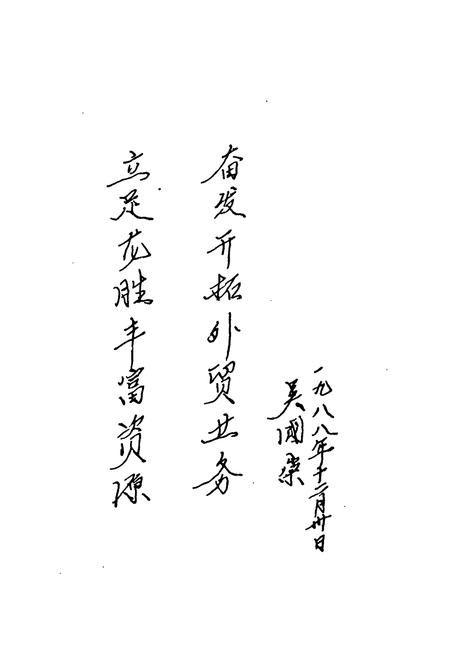 立足龙胜丰富资源
奋发开拓外贸业务
吴國
一九八八年十二月卅日